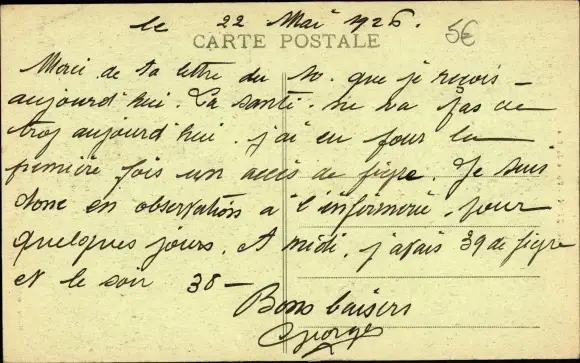 le 22 Mai 1926.
5€
CARTE POSTALE
Merci de ta lettre du 10. que je reçois
aujourd'hui. La santé ne va pas de
trop aujourd'hui. j'ai eu pour la
première fois un accès de fièvre. Je suis
donc en observation à l'infirmerie pour
quelques jours. A midi. j'avais 39 de fièvre
et le soir 38 —
Bons baisers
Georges